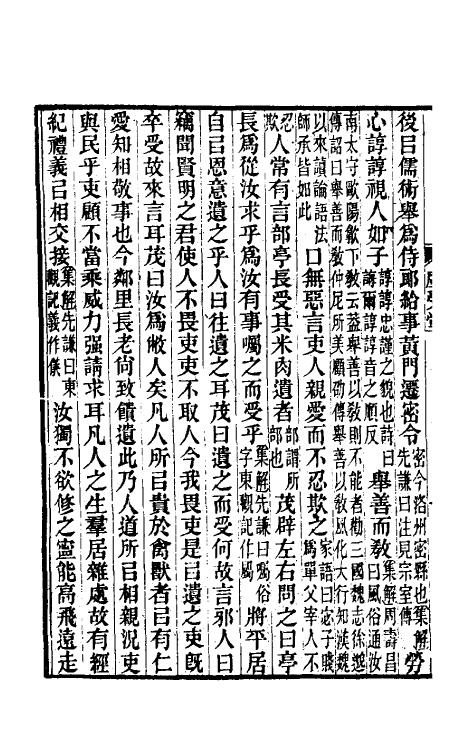 後㠯儒術舉爲侍郎給事黃門遷密令密今洛州密縣也集解先謙曰注見宗室傳勞
心諄諄視人如子諄諄忠謹之貌也詩曰誨爾諄諄音之順反舉善而敎集解周壽昌曰風俗通汝
南太守歐陽歙下敎云蓋舉善以敎則不能者勸三國魏志徐邈
傳詔曰舉善而敎仲尼所美顧劭傳舉善以敎風化大行知漢魏
以來讀論語法師承皆如此口無惡言吏人親愛而不忍欺之家語曰宓子賤爲單父宰人不
忍欺人常有言部亭長受其米肉遺者部謂所部也茂辟左右問之曰亭
長爲從汝求乎爲汝有事囑之而受乎集解先謙曰囑俗字東觀記作屬將平居
自㠯恩意遺之乎人曰往遺之耳茂曰遺之而受何故言邪人曰
竊聞賢明之君使人不畏吏吏不取人今我畏吏是㠯遺之吏旣
卒受故來言耳茂曰汝爲敝人矣凡人所㠯貴於禽獸者㠯有仁
愛知相敬事也今鄰里長老尙致饋遺此乃人道所㠯相親況吏
與民乎吏顧不當乘威力强請求耳凡人之生羣居雜處故有經
紀禮義㠯相交接集解先謙曰東觀記義作儀汝獨不欲修之寧能高飛遠走